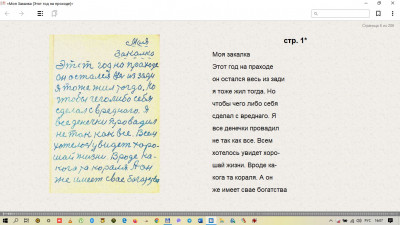 «Моя Закалка (Этот год на проходе)»
Моя
Закалка
Этот год на праходе
он остался весь из зади
я тоже жил тогда. Но
чтобы чего либо себя
сделал с вредного. Я
все денечки провадил
не так как все. Всем
хотелось увидет хоро-
шай жизни. Вроде ка-
кога та кораля. А он
же имеет свае богатсва
стр. 1*
Моя закалка
Этот год на праходе
он остался весь из зади
я тоже жил тогда. Но
чтобы чего либо себя
сделал с вреднаго. Я
все денечки провадил
не так как все. Всем
хотелось увидет хоро-
шай жизни. Вроде ка-
кога та кораля. А он
же имеет свае богатства